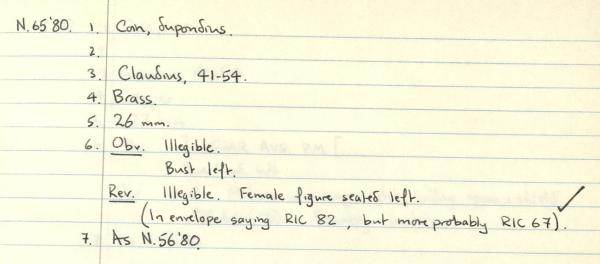 N.65'80. 1. Coin, dupondius.
2.
3. Claudius, 41-54.
4. Brass.
5. 26 mm.
6. Obv. Illegible.
Bust left.
Rev. Illegible. Female figure seated left.
(In envelope saying RIC 82, but more probably RIC 67).
7. As N.56'80